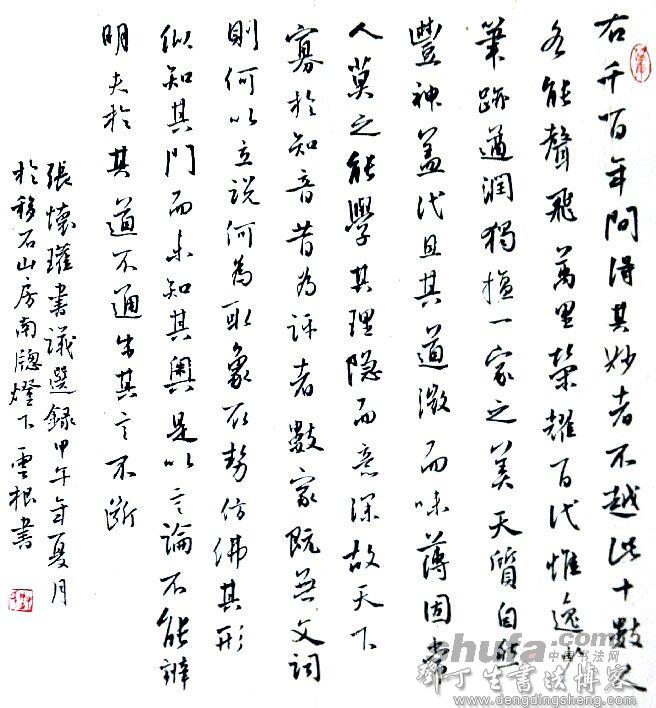 右千百年間得其妙者不越此十數人
各能聲飛萬里榮耀百代惟逸少
筆跡遒潤獨擅一家之美天質自然
豐神蓋代且其道微而味薄固常
人莫之能學其理隐而意深故天下
寡於知音昔為評者數家既無文詞
則何以立説何為取象取勢仿佛其形
似知其門而未知其奧是以言論不能辨
明夫於其道不通出其言不断
張懷瓘書議選録甲午年夏月
於移石山房南牕燈下雲根書
shufa.com
中国书法网
邓丁生書法博客
www.dengdingsheng.com